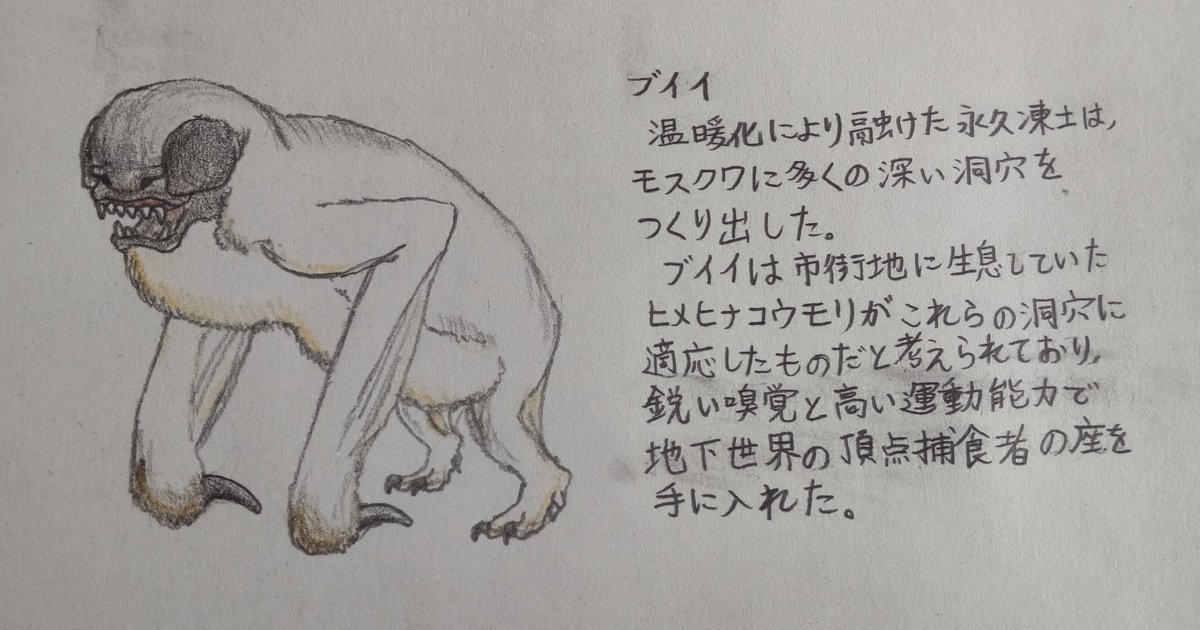 ブイイ
温暖化により融けた永久凍土は,
モスクワに多くの深い洞穴を
つくり出した。
ブイイは市街地に生息していた
ヒメヒナコウモリがこれらの洞穴に
適応したものだと考えられており,
鋭い嗅覚と高い運動能力で
地下世界の頂点捕食者の座を
手に入れた。